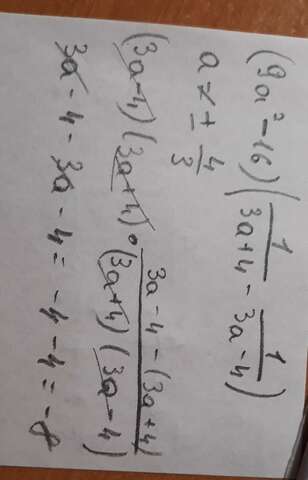 (9a² - 16) (1/(3a+4) - 1/(3a-4))
a ≠ ± 4/3
(3a-4) (3a+4) · (3a - 4 - (3a + 4))/((3a+4) (3a-4))
3a - 4 - 3a - 4 = -4 - 4 = -8